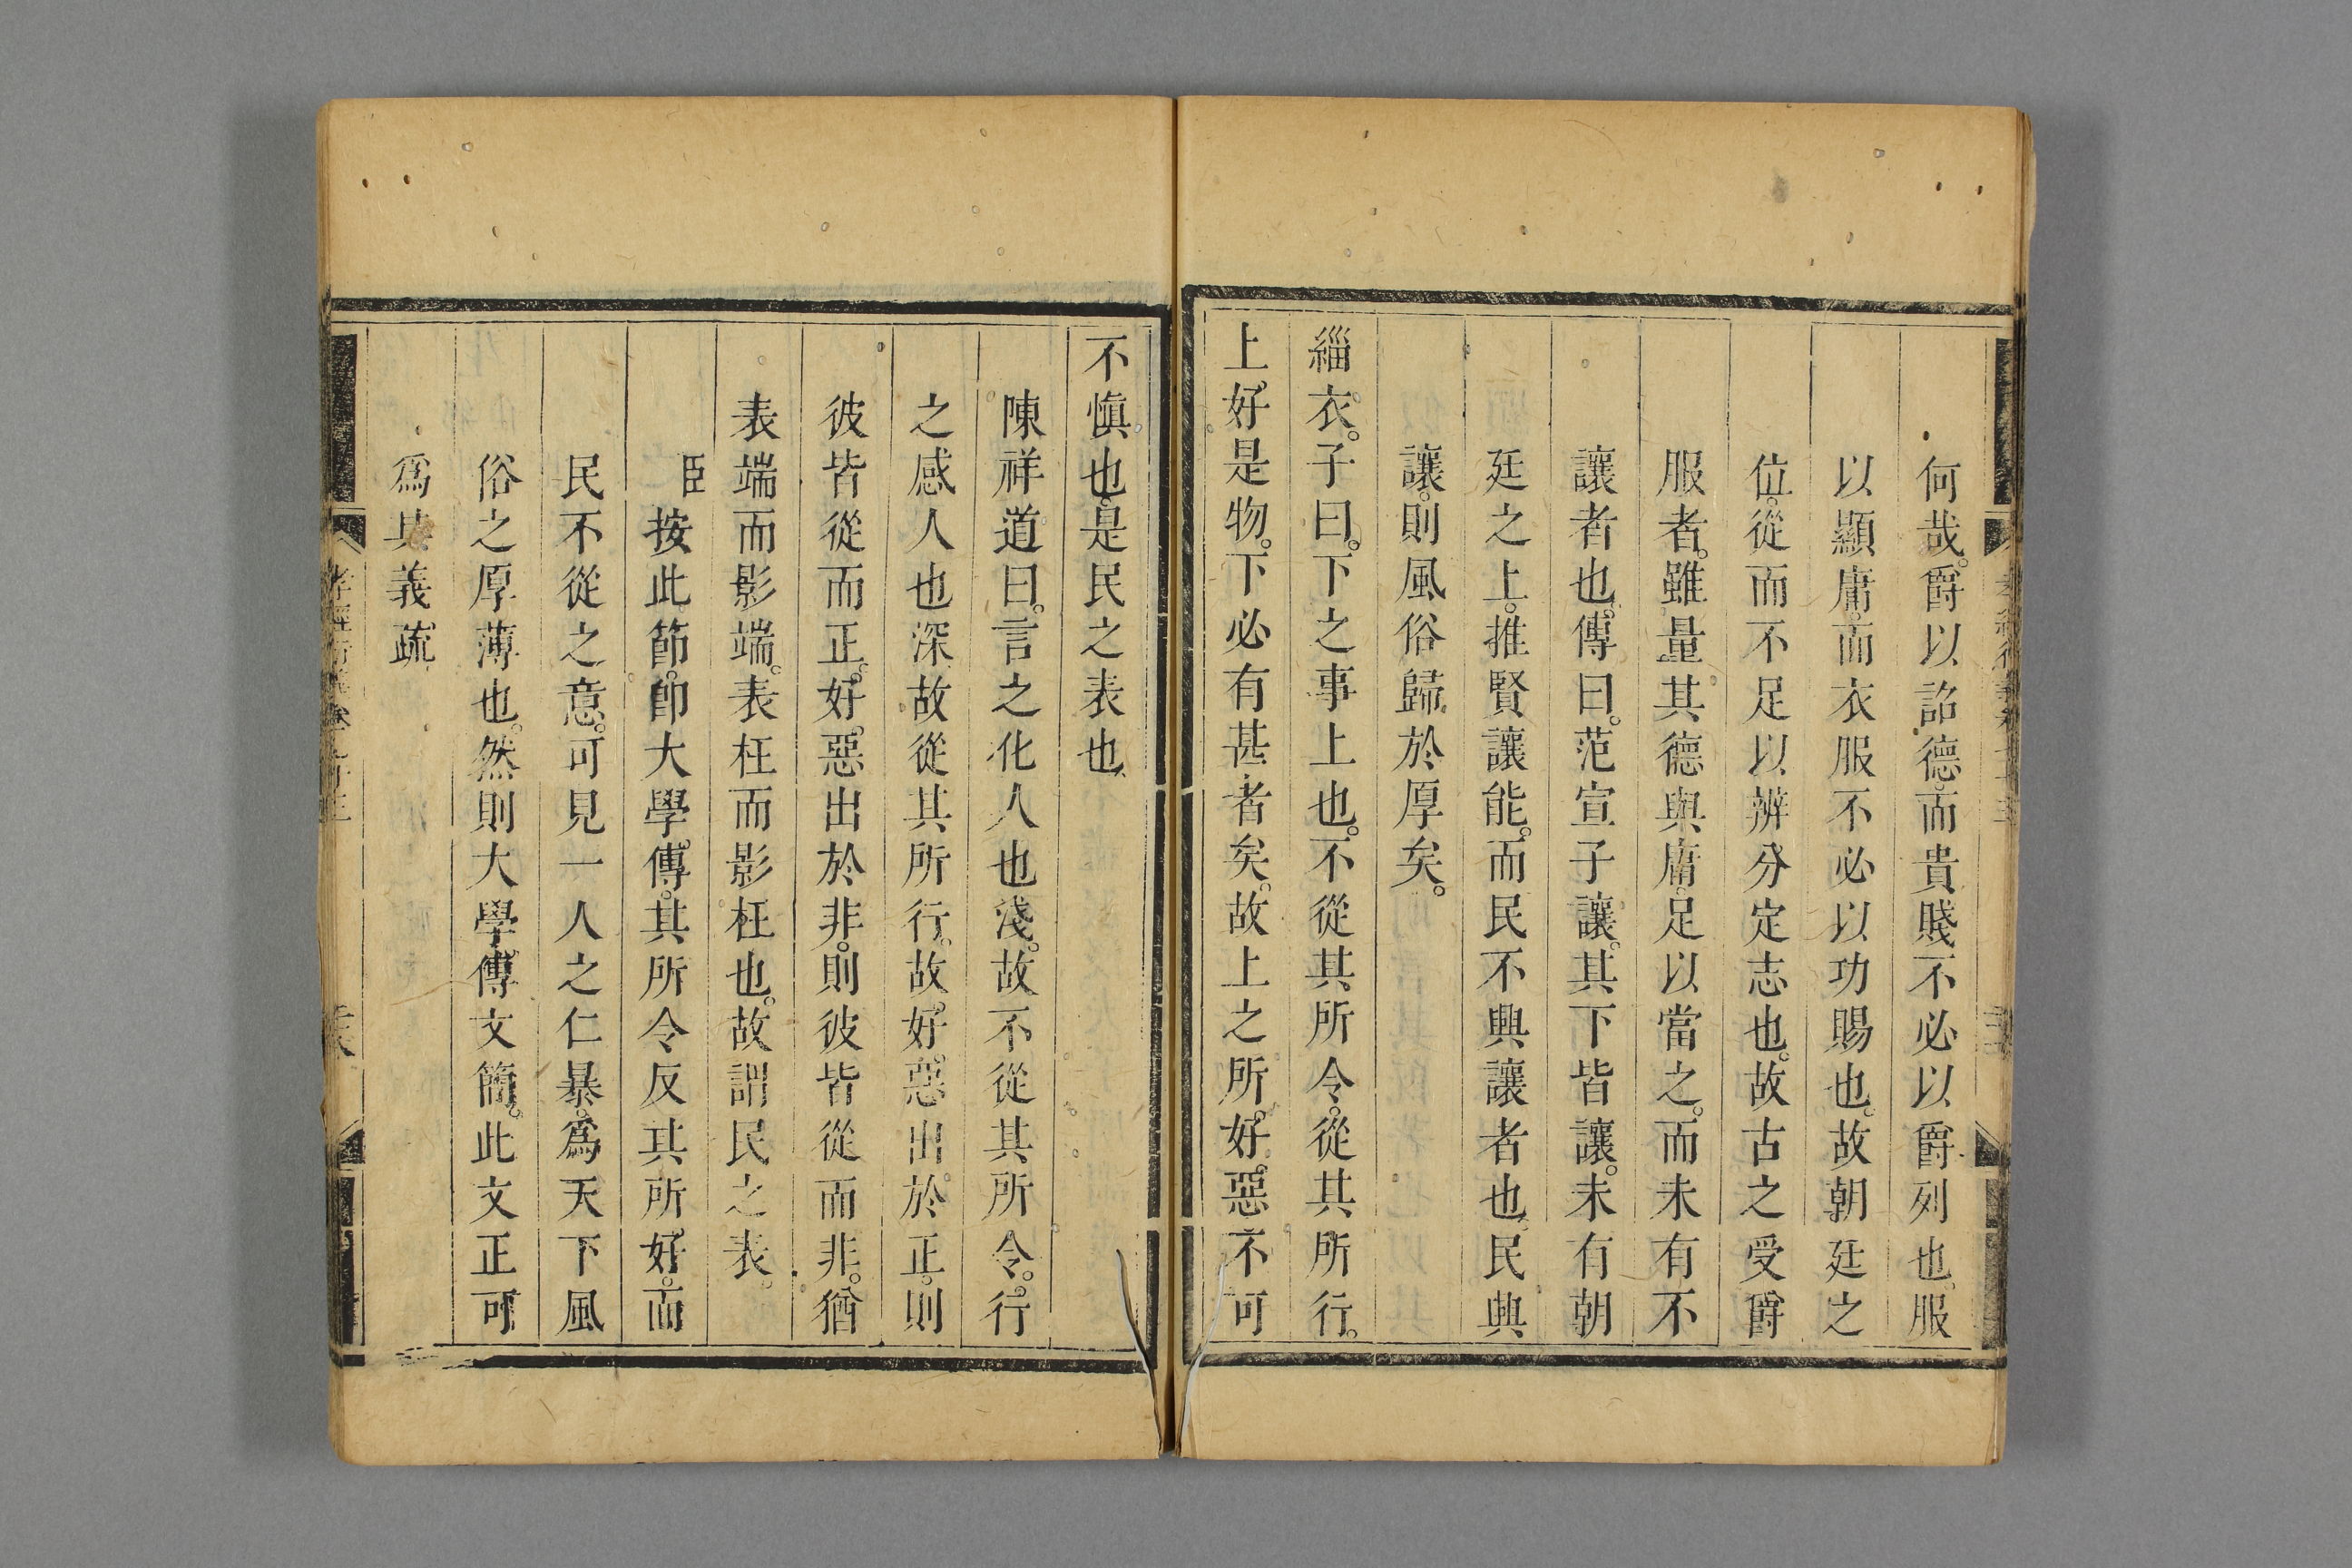 何哉。爵以詔德。而貴賤不必以爵列也。服
以顯庸。而衣服不必以功賜也。故朝廷之
位。從而不足以辨分定志也。故古之受爵
服者。雖量其德與庸。足以當之。而未有不
讓者也。傳曰。范宣子讓。其下皆讓。未有朝
廷之上。推賢讓能。而民不興讓者也。民興
讓。則風俗歸於厚矣。
緇衣。子曰。下之事上也。不從其所令。從其所行。
上好是物。下必有甚者矣。故上之所好惡。不可
不慎也。是民之表也。
陳祥道曰。言之化人也淺。故不從其所令。行
之感人也深。故從其所行。故好惡出於正。則
彼皆從而正。好惡出於非。則彼皆從而非。猶
表端而影端。表枉而影枉也。故謂民之表。
臣按此節。卽大學傳。其所令反其所好。而
民不從之意。可見一人之仁暴。爲天下風
俗之厚薄也。然則大學傳文簡。此文正可
爲其義疏。